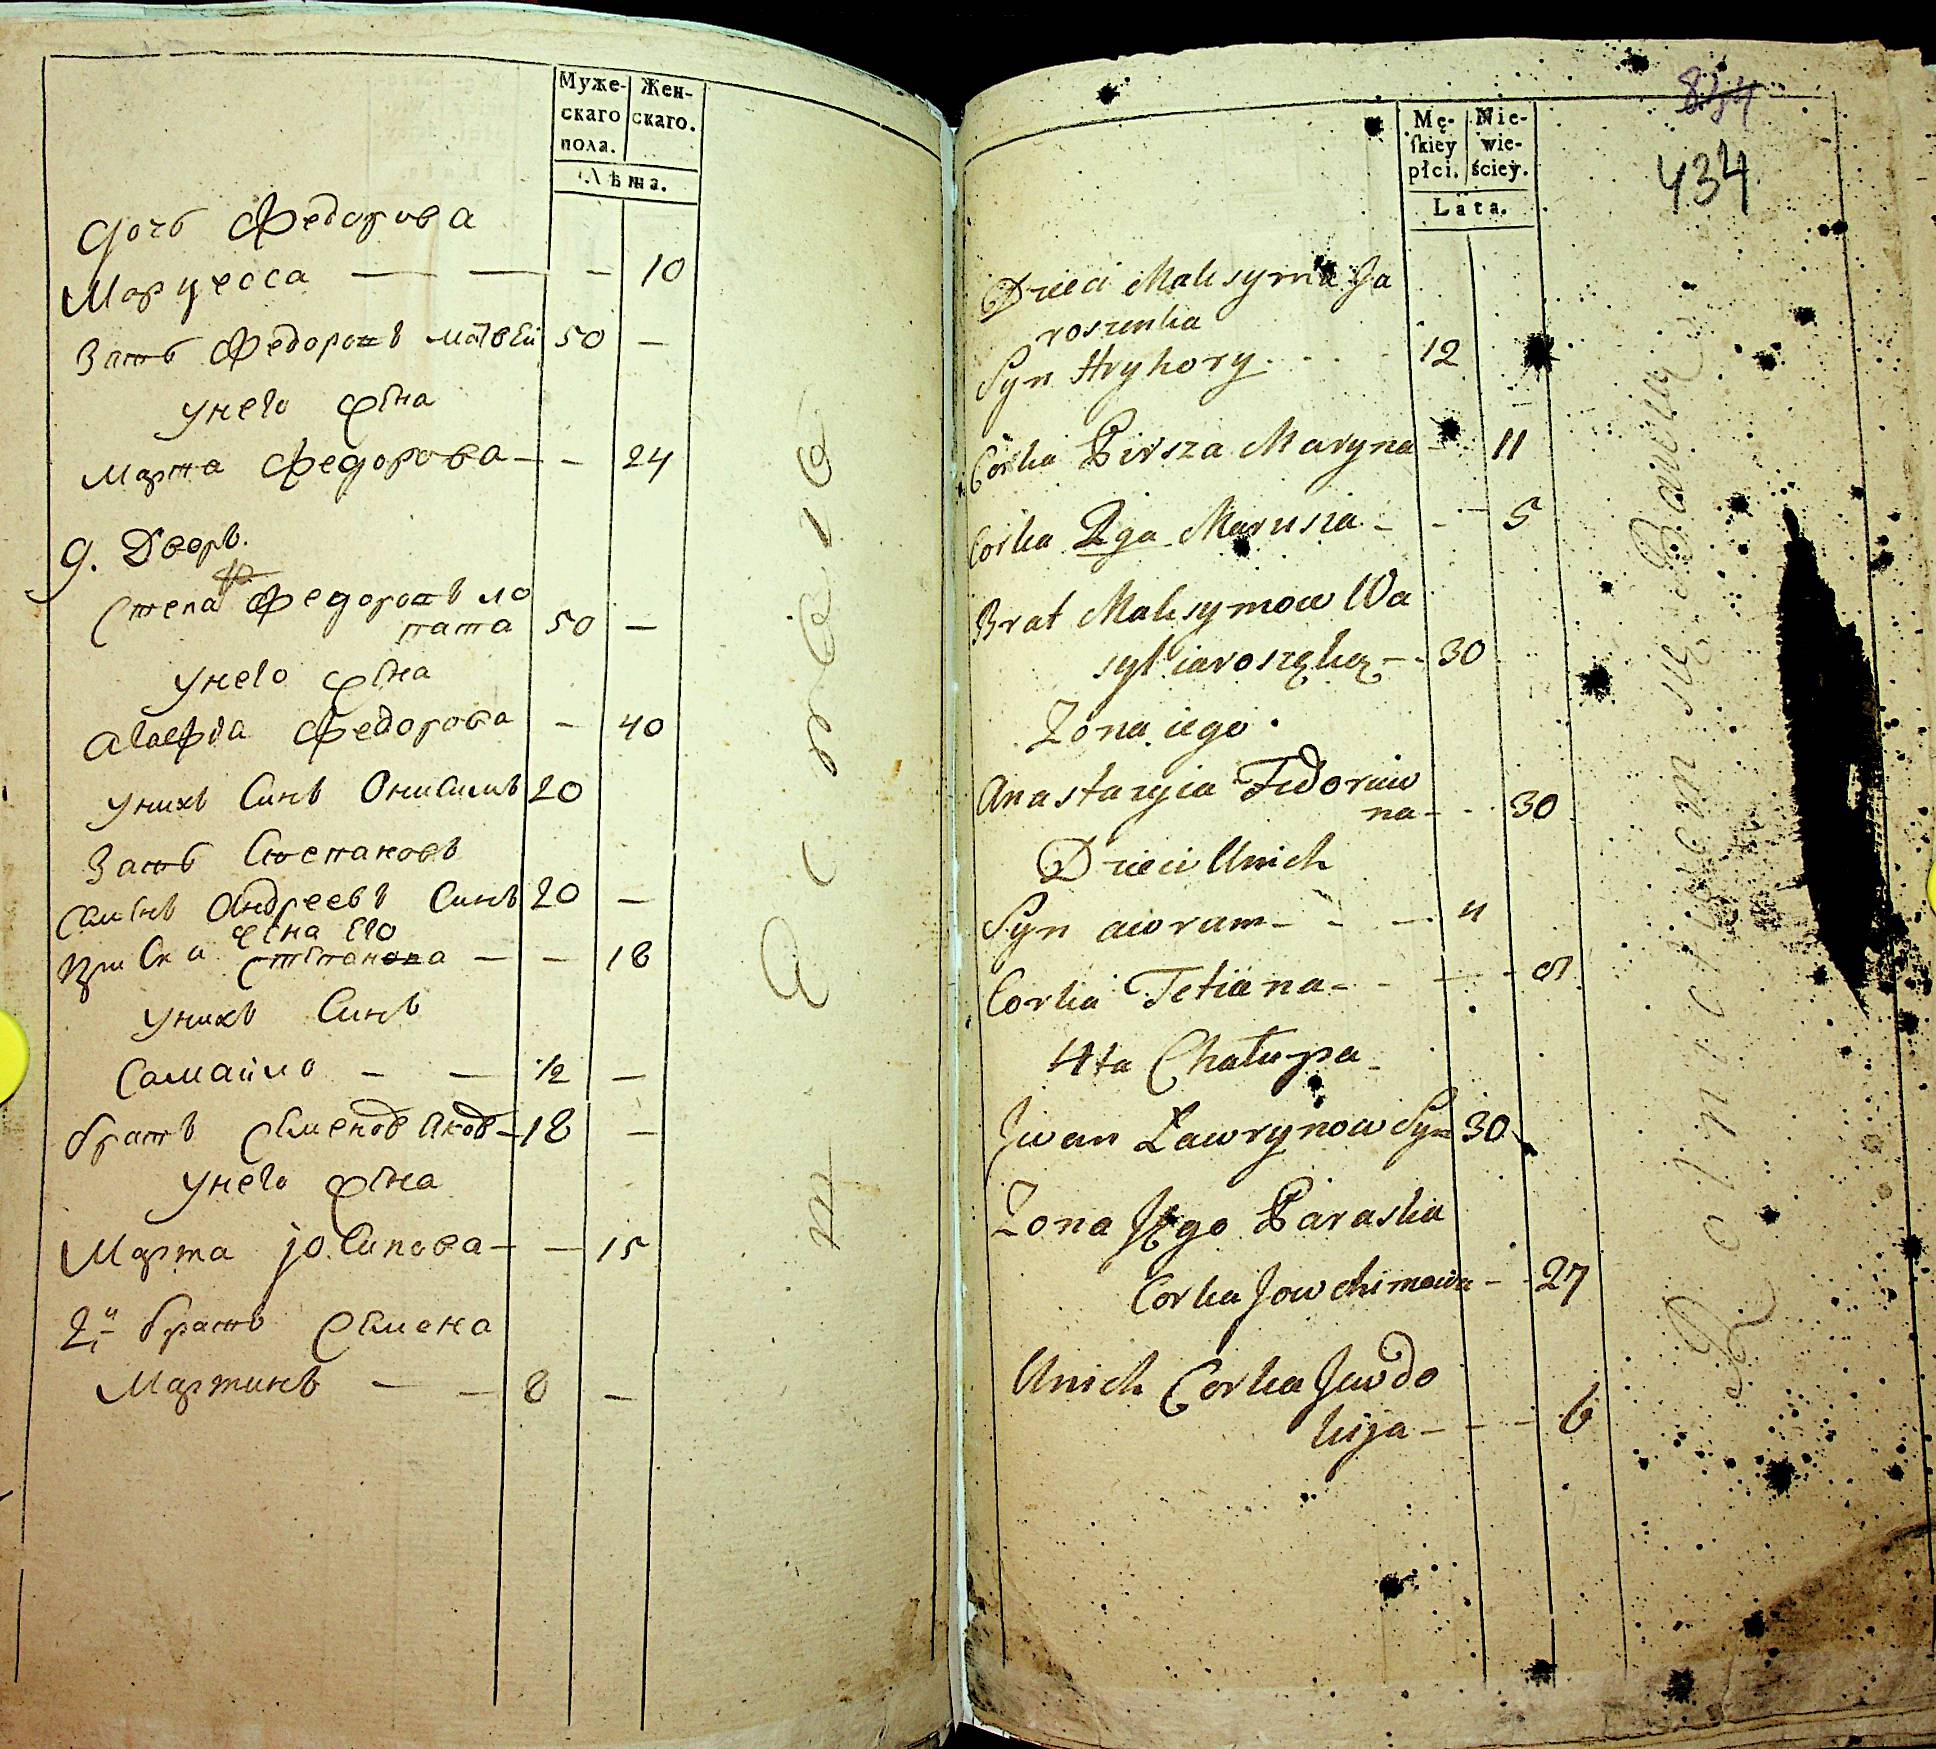 Муже- Жен-
скаго скаго.
пола.
Лѣта.
дочь Федорова
Марцеса — — — 10
Зать Федоровъ матвей 50 —
унего жена
Марта Федорова — — 24
9. Дворъ.
Степан Федоровъ ло
пата 50 —
унего жена
Агаефиа Федорова — 40
унихъ Синъ Онисимъ 20
Зать Степановъ
Андреевъ Синъ 20 —
жена Его
Степанова — — 18
унихъ Синъ
Самайло — — 1/2 —
братъ Семенов Яков — 18 —
унего жена
Марта јосипова — — 15
2й братъ Семена
Мартинъ — — 8 —
Mę- Nie-
skiey wie-
płci. ściey.
Lata.
434
Dzieci Maksyma Ja
roszenka
Syn Hryhory 12
Corka Pirsza Maryna - 11
Corka 2ga Marusza - - 5
Brat Maksymow Wa
syl iaroszęko - 30
Zona iego
Anastazyia Fedorow
na - - 30
Dzieci Unich
Syn awram - - - 11
Corka Tetiana - - - - 9
4ta Chałupa
Jwan Ławrynow Syn 30
Zona Jego Paraska
Corka Jowchimowa - - 27
Unich Corka Jawdo
kija - - - 6